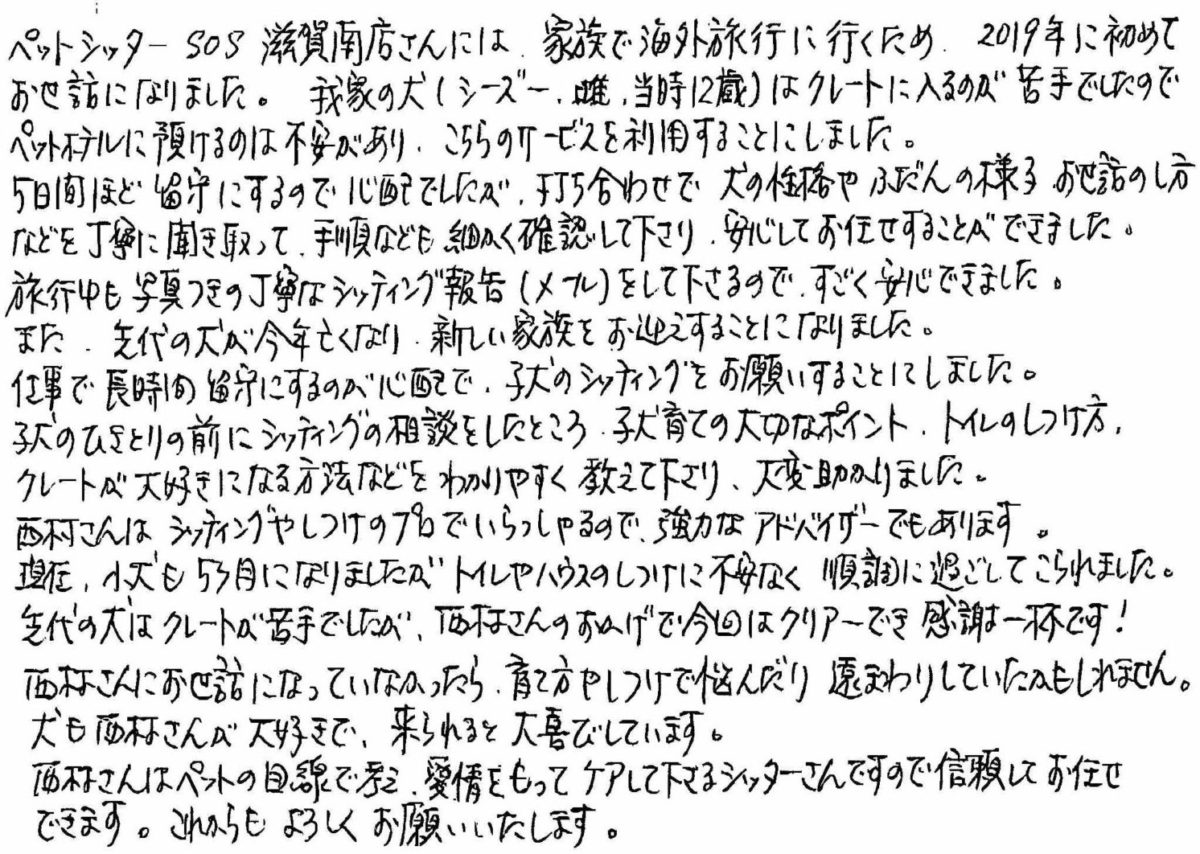 ペットシッターSOS 滋賀南店さんには、家族で海外旅行に行くため、2019年に初めて
お世話になりました。我家の犬(シーズー、雌、当時12歳)はクレートに入るのが苦手でしたので
ペットホテルに預けるのは不安があり、こちらのサービスを利用することにしました。
5日間ほど留守にするので心配でしたが、打ち合わせで犬の性格やふだんの様子、お世話のし方
などを丁寧に聞き取って、手順なども細かく確認して下さり、安心してお任せすることができました。
旅行中も写真つきの丁寧なシッティング報告(メール)をして下さるので、すごく安心できました。
また、先代の犬が今年亡くなり、新しい家族をお迎えすることになりました。
仕事で長時間留守にするのが心配で、子犬のシッティングをお願いすることにしました。
子犬のひきとりの前にシッティングの相談をしたところ、子犬育ての大切なポイント、トイレのしつけ方、
クレートが大好きになる方法などをわかりやすく教えて下さり、大変助かりました。
西村さんはシッティングやしつけのプロでいらっしゃるので、強力なアドバイザーでもあります。
現在、小犬も5ヶ月になりましたがトイレやハウスのしつけに不安なく順調に過ごしてこられました。
先代の犬はクレートが苦手でしたが、西村さんのおかげで今回はクリアーでき感謝一杯です!
西村さんにお世話になっていなかったら、育て方やしつけで悩んだり遠まわりしていたかもしれません。
犬も西村さんが大好きで、来られると大喜びしています。
西村さんはペットの目線で考え、愛情をもってケアして下さるシッターさんですので信頼してお任せ
できます。これからもよろしくお願いいたします。